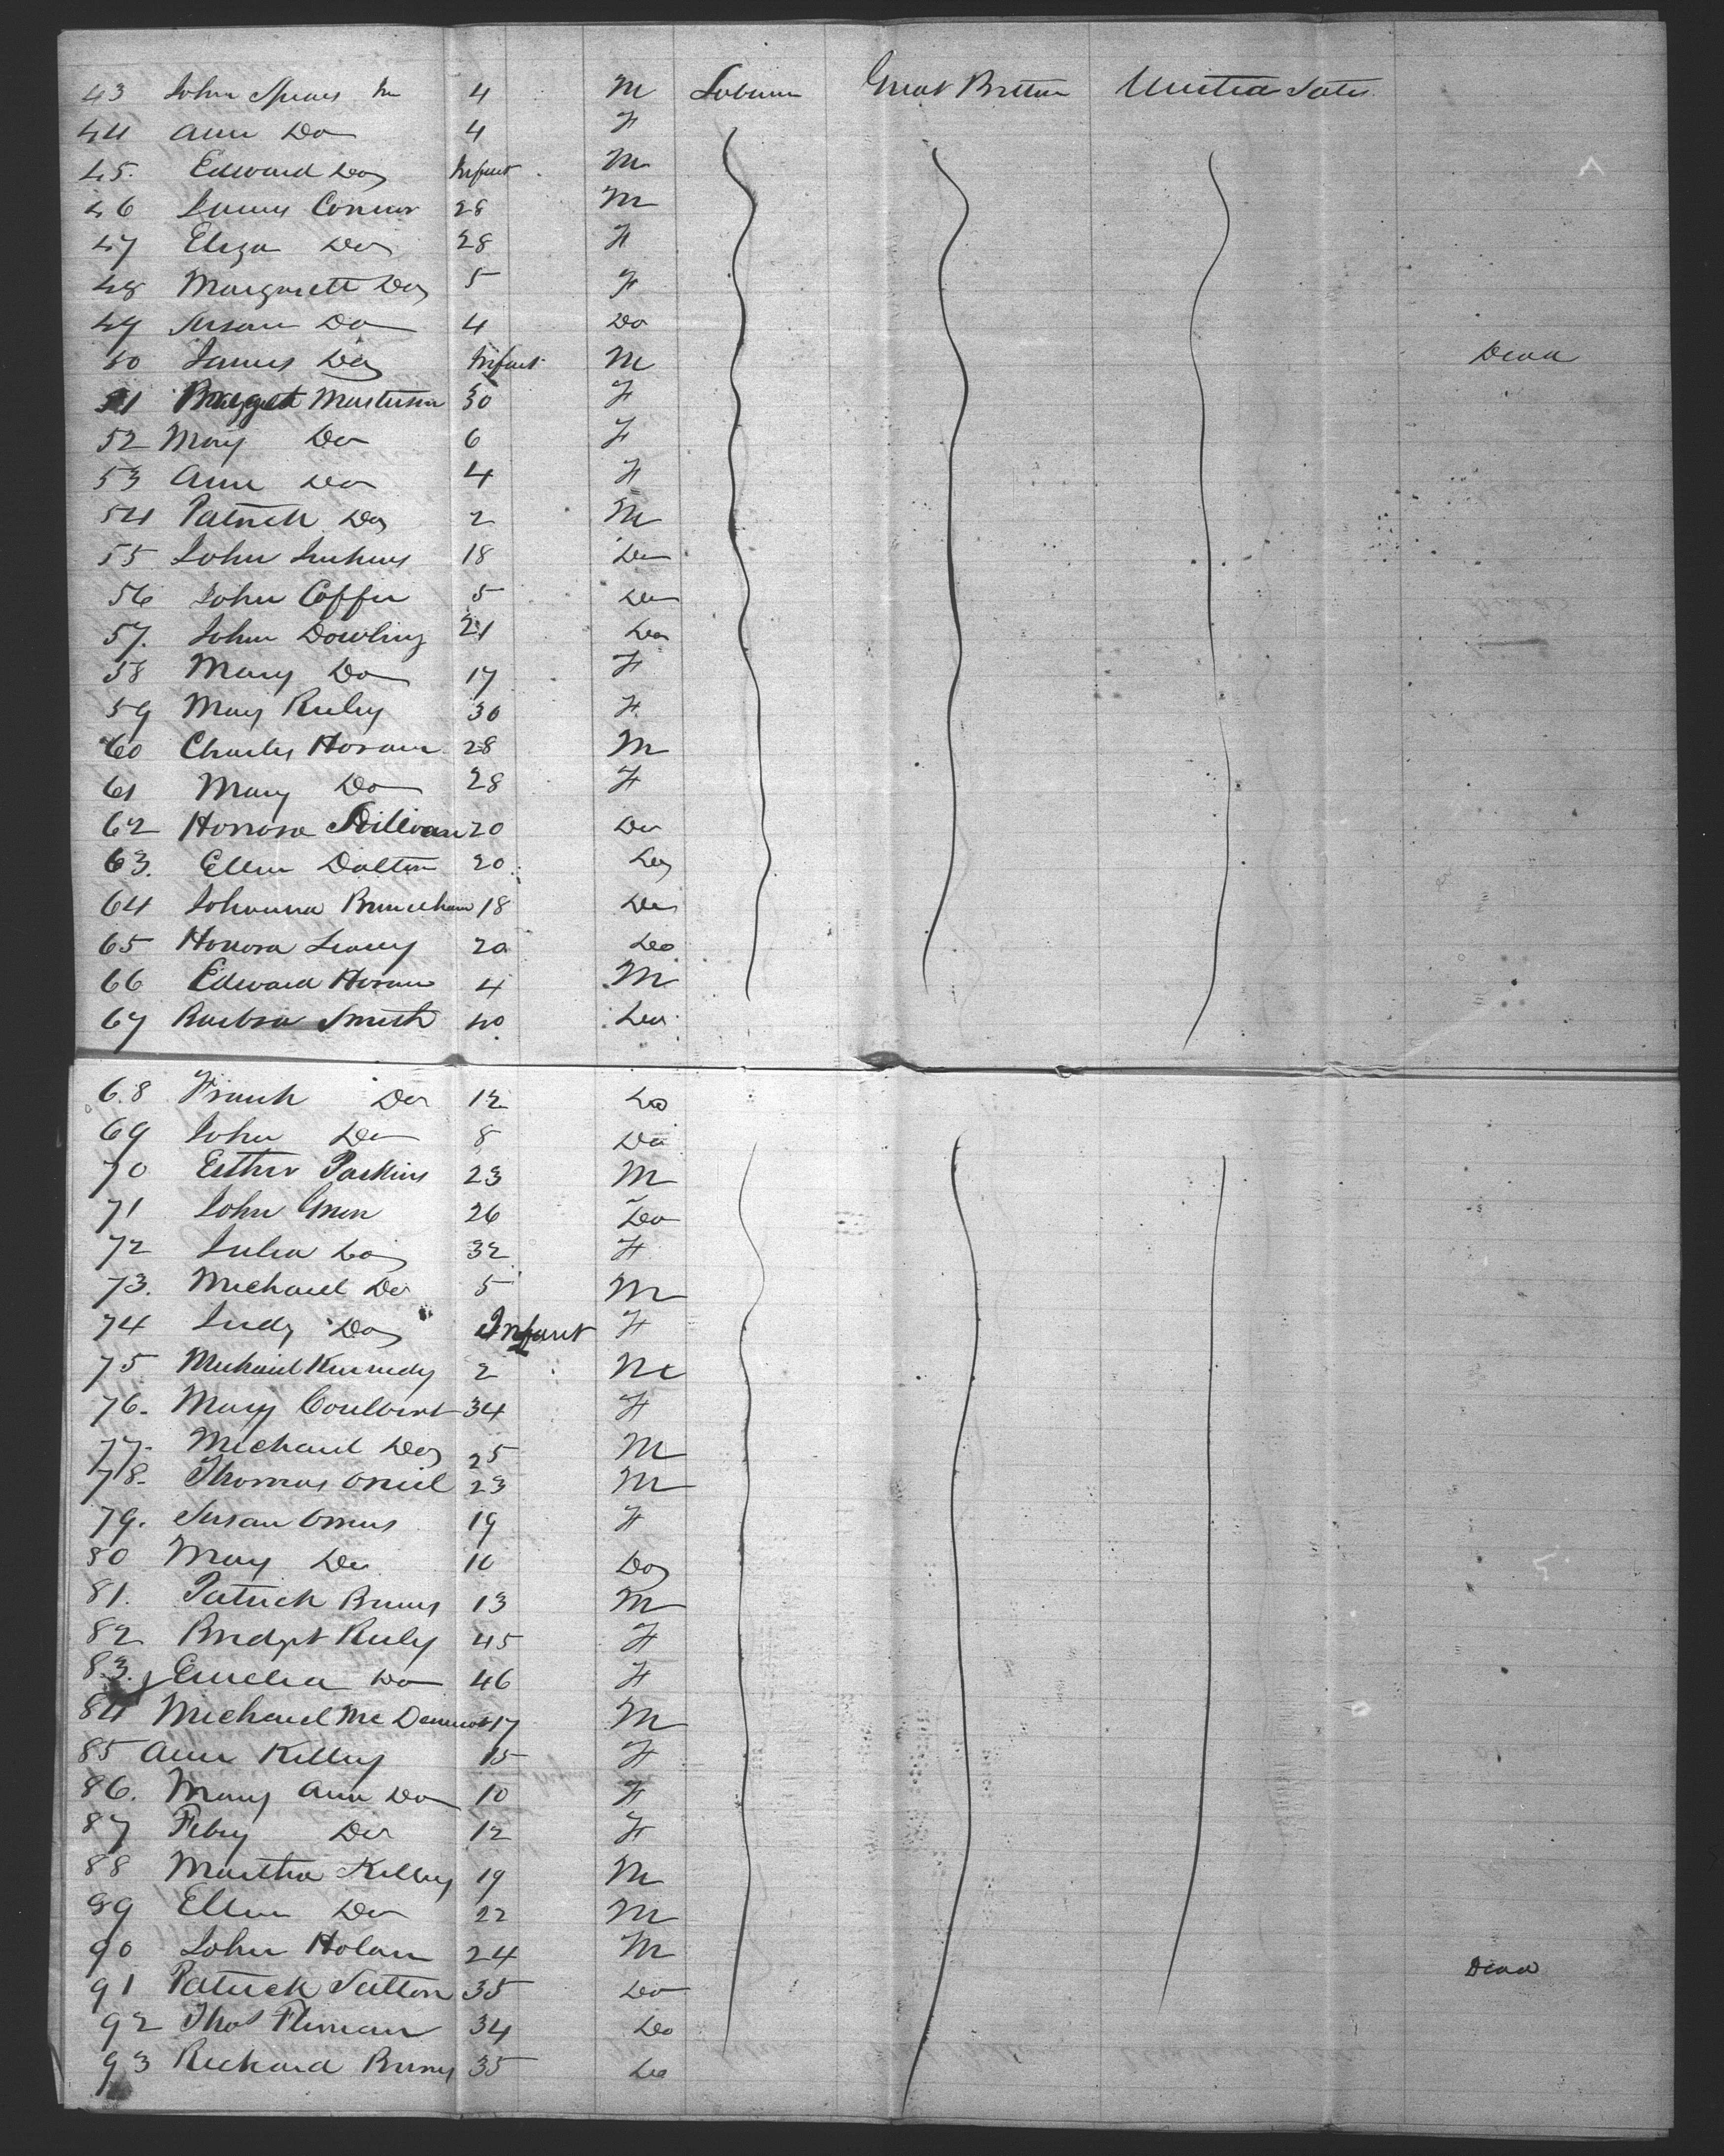 43 John Spears Jn 4 M Laborer Great Brittan United States
44 Ann Do 4 F
45. Edward Do Infant M
46 James Connor 28 M
47 Eliza Do 28 F
48 Margarett Do 5 F
49 Susan Do 4 Do
50 James Do Infant M Dead
51 Bragget Masterson 30 F
52 Mary Do 6 F
53 Ann Do 4 F
54 Patrick Do 2 M
55 John 18 Do
56 John Coffee 5 Do
57. John Dowling 21 Do
58 Mary Do 17 F
59 Mary Rieley 30 F
60 Charles Horan 28 M
61 Mary Do 28 F
62 Honora Sullivan 20 Do
63. Ellen Dalton 20 Do
64 Johanna 18 Do
65 Honora Leary 20 Do
66 Edward Horan 4 M
67 Barbra Smith 40 Do
68 Frank Do 12 Do
69 John Do 8 Do
70 Esther Paskins 23 M
71 John Green 26 Do
72 Julia Do 32 F
73. Michael Do 5 M
74 Judy Do Infant F
75 Michael Kennedy 2 M
76. Mary Coulbert 34 F
77. Michael Do 25 M
78. Thomas Oniel 23 M
79. Susan 19 F
80 Mary Do 10 Do
81. Patrick Burns 13 M
82 Bridget Riely 45 F
83. Emelia Do 46 F
84 Michael Mc Dermot 17 M
85 Ann Killey 15 F
86. Mary Ann Do 10 F
87 Feby Do 12 F
88 Martha Killey 19 M
89 Ellen Do 22 M
90 John Holan 24 M Dead
91 Patrick Sutton 35 Do
92 Thos 34 Do
93 Richard Burns 35 Do